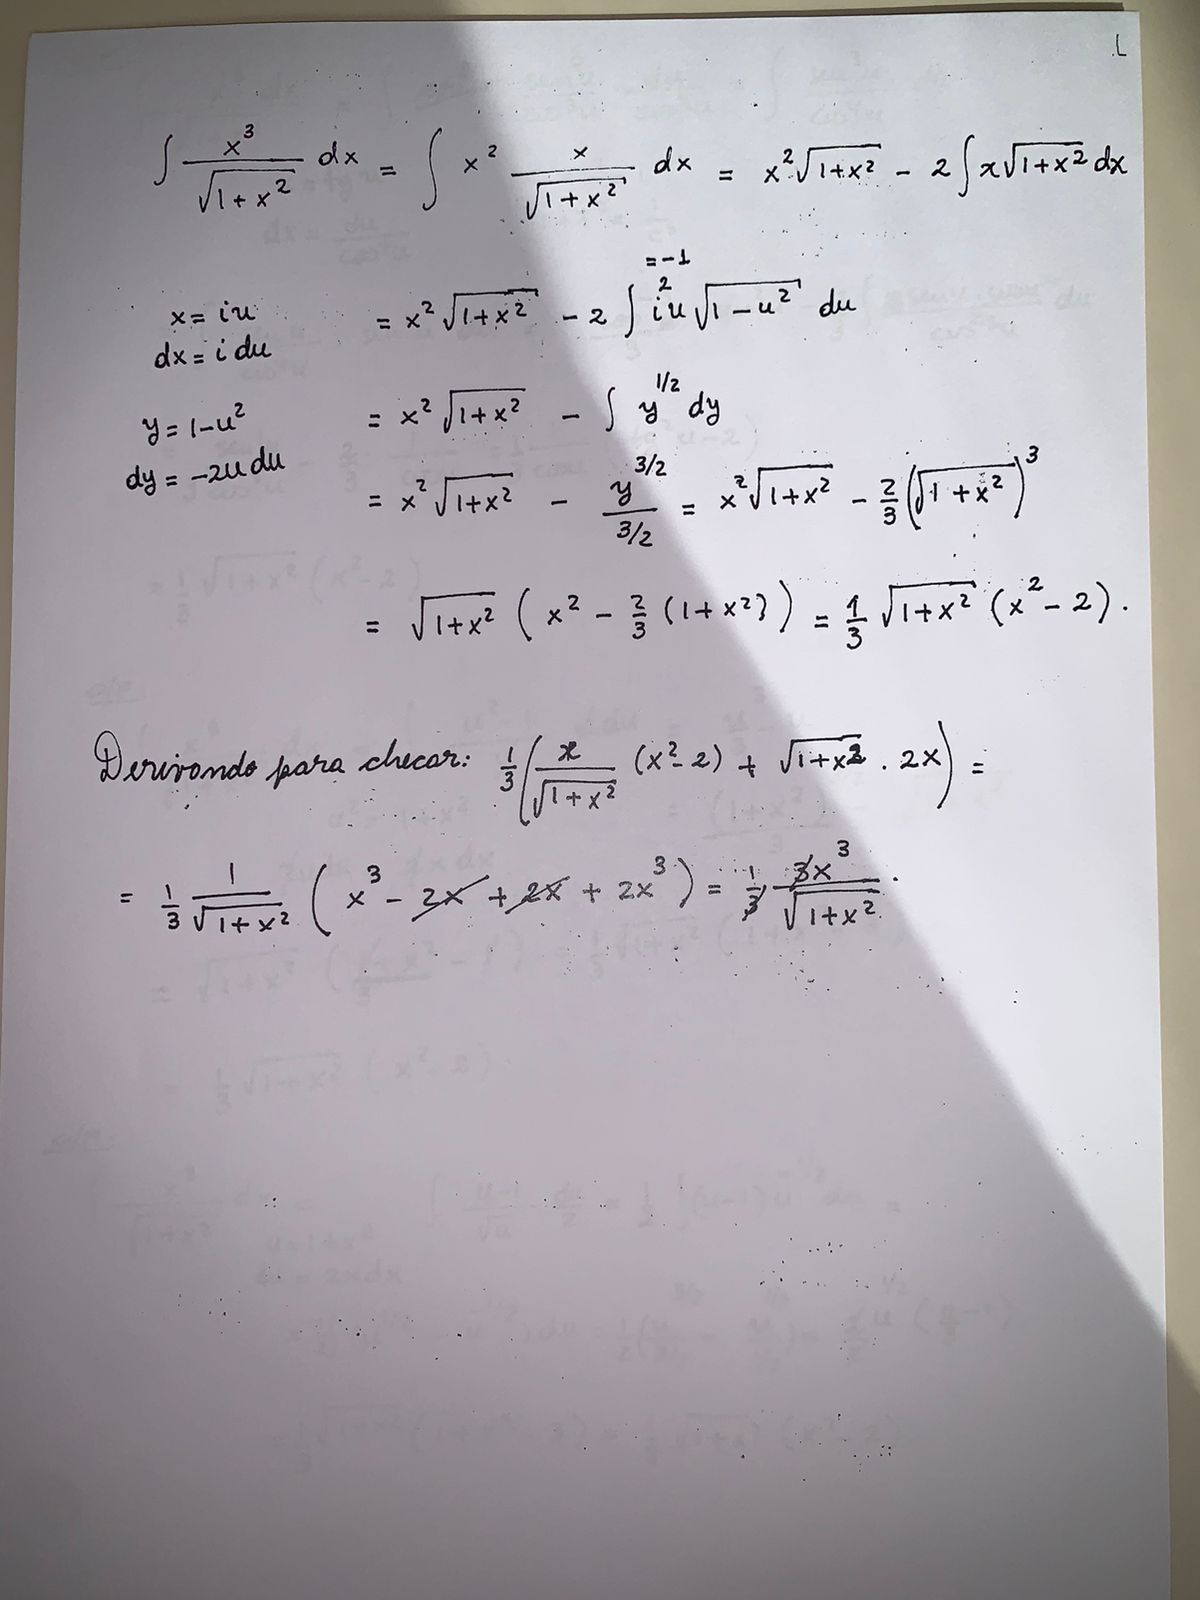 L
∫ x³/√(1+x²) dx = ∫ x² x/√(1+x²) dx = x²√(1+x²) - 2∫x√(1+x²) dx
= -1
x = iu = x²√(1+x²) - 2 ∫ i²u√(1-u²) du
dx = i du
y = 1-u² = x²√(1+x²) - ∫ y^{1/2} dy
dy = -2u du
= x²√(1+x²) - y^{3/2}/(3/2) = x²√(1+x²) - 2/3 (√(1+x²))³
= √(1+x²) (x² - 2/3 (1+x²)) = 1/3 √(1+x²) (x² - 2).
Derivando para checar: 1/3 (x/√(1+x²) (x²-2) + √(1+x²) . 2x) =
= 1/3 1/√(1+x²) (x³ - 2x + 2x + 2x³) = 1/3 3x³/√(1+x²) .